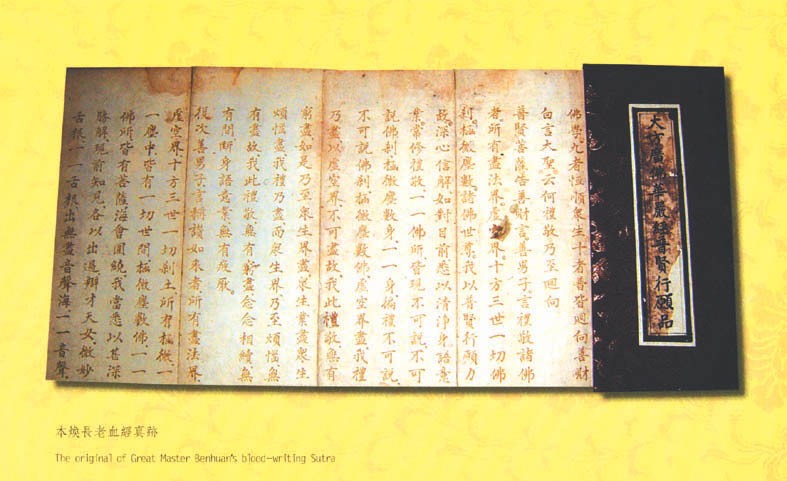 大方廣佛華嚴經普賢行願品
佛學九者恒順衆生十者普皆迴向善財
白言大聖云何禮敬乃至迴向
普賢菩薩告善財言善男子言禮敬諸佛
者所有盡法界虛空界十方三世一切佛
刹極微塵數諸佛世尊我以普賢行願力
故深心信解如對目前悉以清淨身語意
業常修禮敬一一佛所皆現不可說不可
說佛刹極微塵數身一一身徧禮不可說
不可說佛刹極微塵數佛虛空界盡我禮
乃盡以虛空界不可盡故我此禮敬無有
窮盡如是乃至衆生界盡衆生業盡衆生
煩惱盡我禮乃盡而衆生界乃至煩惱無
有盡故我此禮敬無有窮盡念念相續無
有間斷身語意業無有疲厭。
復次善男子言稱讚如來者所有盡法界
虛空界十方三世一切刹土所有極微一
一塵中皆有一切世間極微塵數佛一一
佛所皆有菩薩海會圍繞我當悉以甚深
勝解現前知見各以出過辯才天女微妙
舌根一一舌根出無盡音聲海一一音聲
本煥長老血經真跡
The original of Great Master Benhuan's blood-writing Sutra